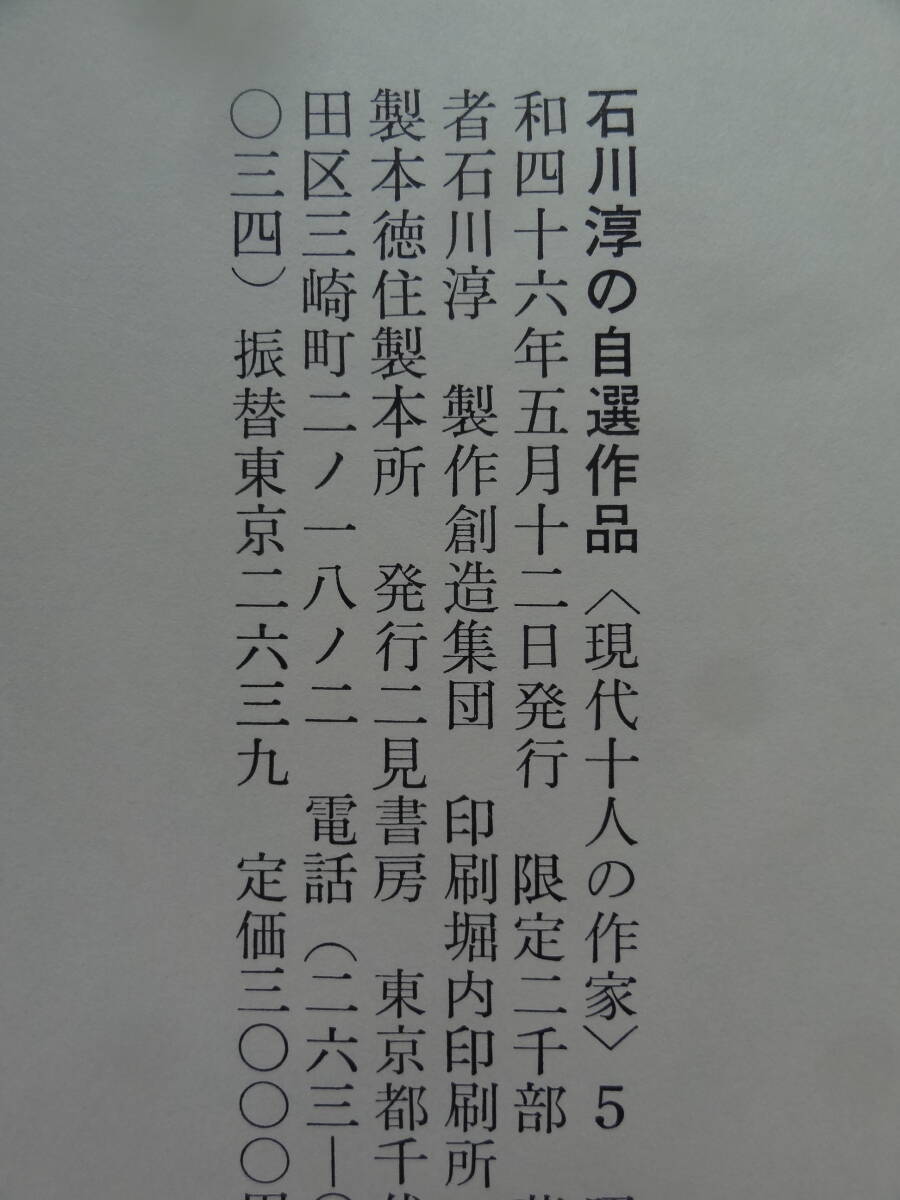 石川淳の自選作品〈現代十人の作家〉5
和四十六年五月十二日発行 限定二千部
者石川淳 製作創造集団 印刷堀内印刷所
製本徳住製本所 発行二見書房 東京都千
田区三崎町二ノ一八ノ二 電話(二六三―
〇三四)振替東京二六三九 定価三〇〇〇